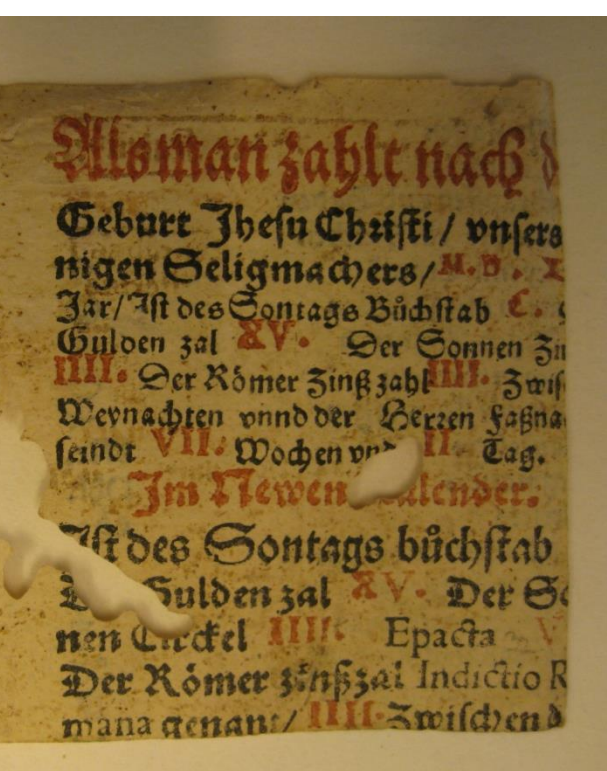 Als man zahlt nach
Geburt Jhesu Christi / vnsers
nigen Seligmachers / M. D.
Jar / Ist des Sontags Bůchstab C.
Gulden zal XV. Der Sonnen
IIII. Der Römer Zinß zahl IIII.
Weynachten vnnd der Herren
seindt VII. Wochen vnd II. Tag.
Im Newen
Ist des Sontags bůchstab
Gulden zal XV. Der
nen Circkel IIII. Epacta
Der Römer zinßzal Indictio
mana genant / IIII. Zwischen